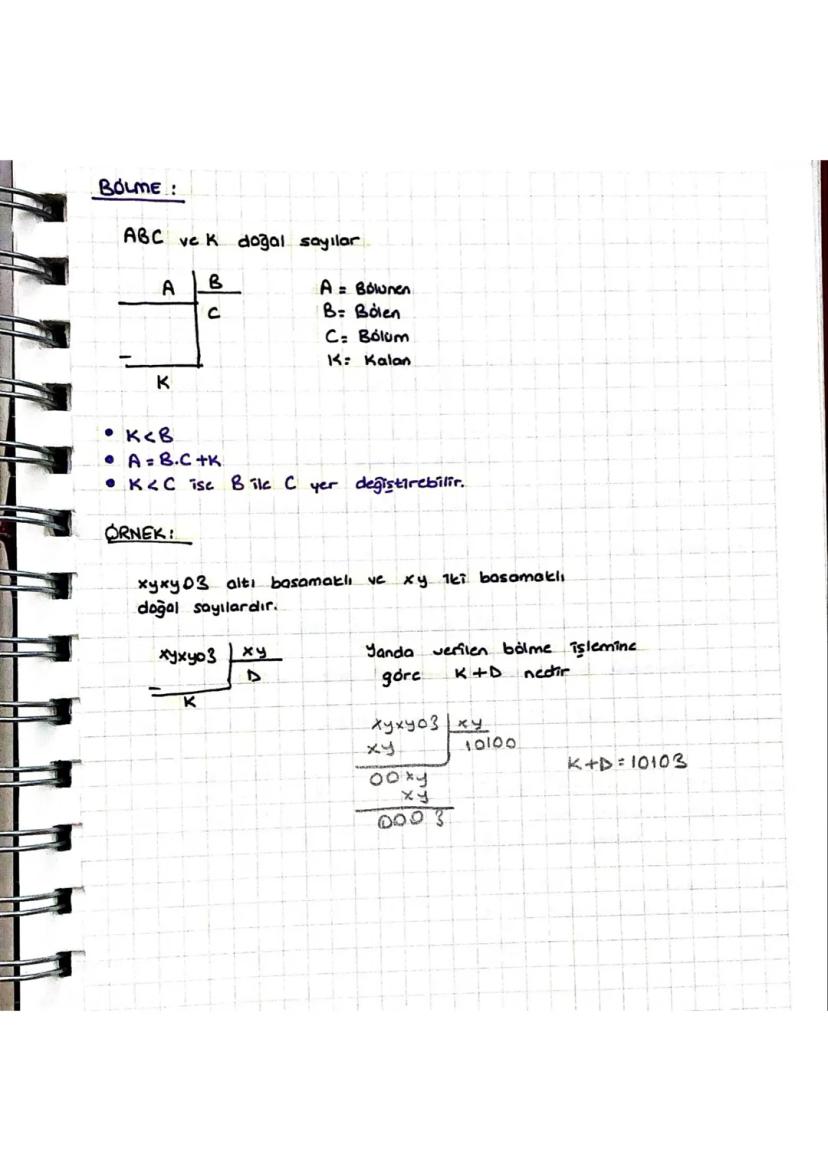 BÖLME :
ABC ve K doğal sayılar
A B
C
K
A = Bölünen
B = Bölen
C = Bölüm
K = Kalan
• K<B
• A = B.C+K
• K<C ise B ile C yer değiştirebilir.
ÖRNEK:
xyxy03 altı basamaklı ve xy iki basamaklı
doğal sayılardır.
xyxy03 xy
D
K
Yanda verilen bölme işlemine
göre K+D nedir
xyxy03 xy
xy 10100
00xy
xy
0003
K+D=10103